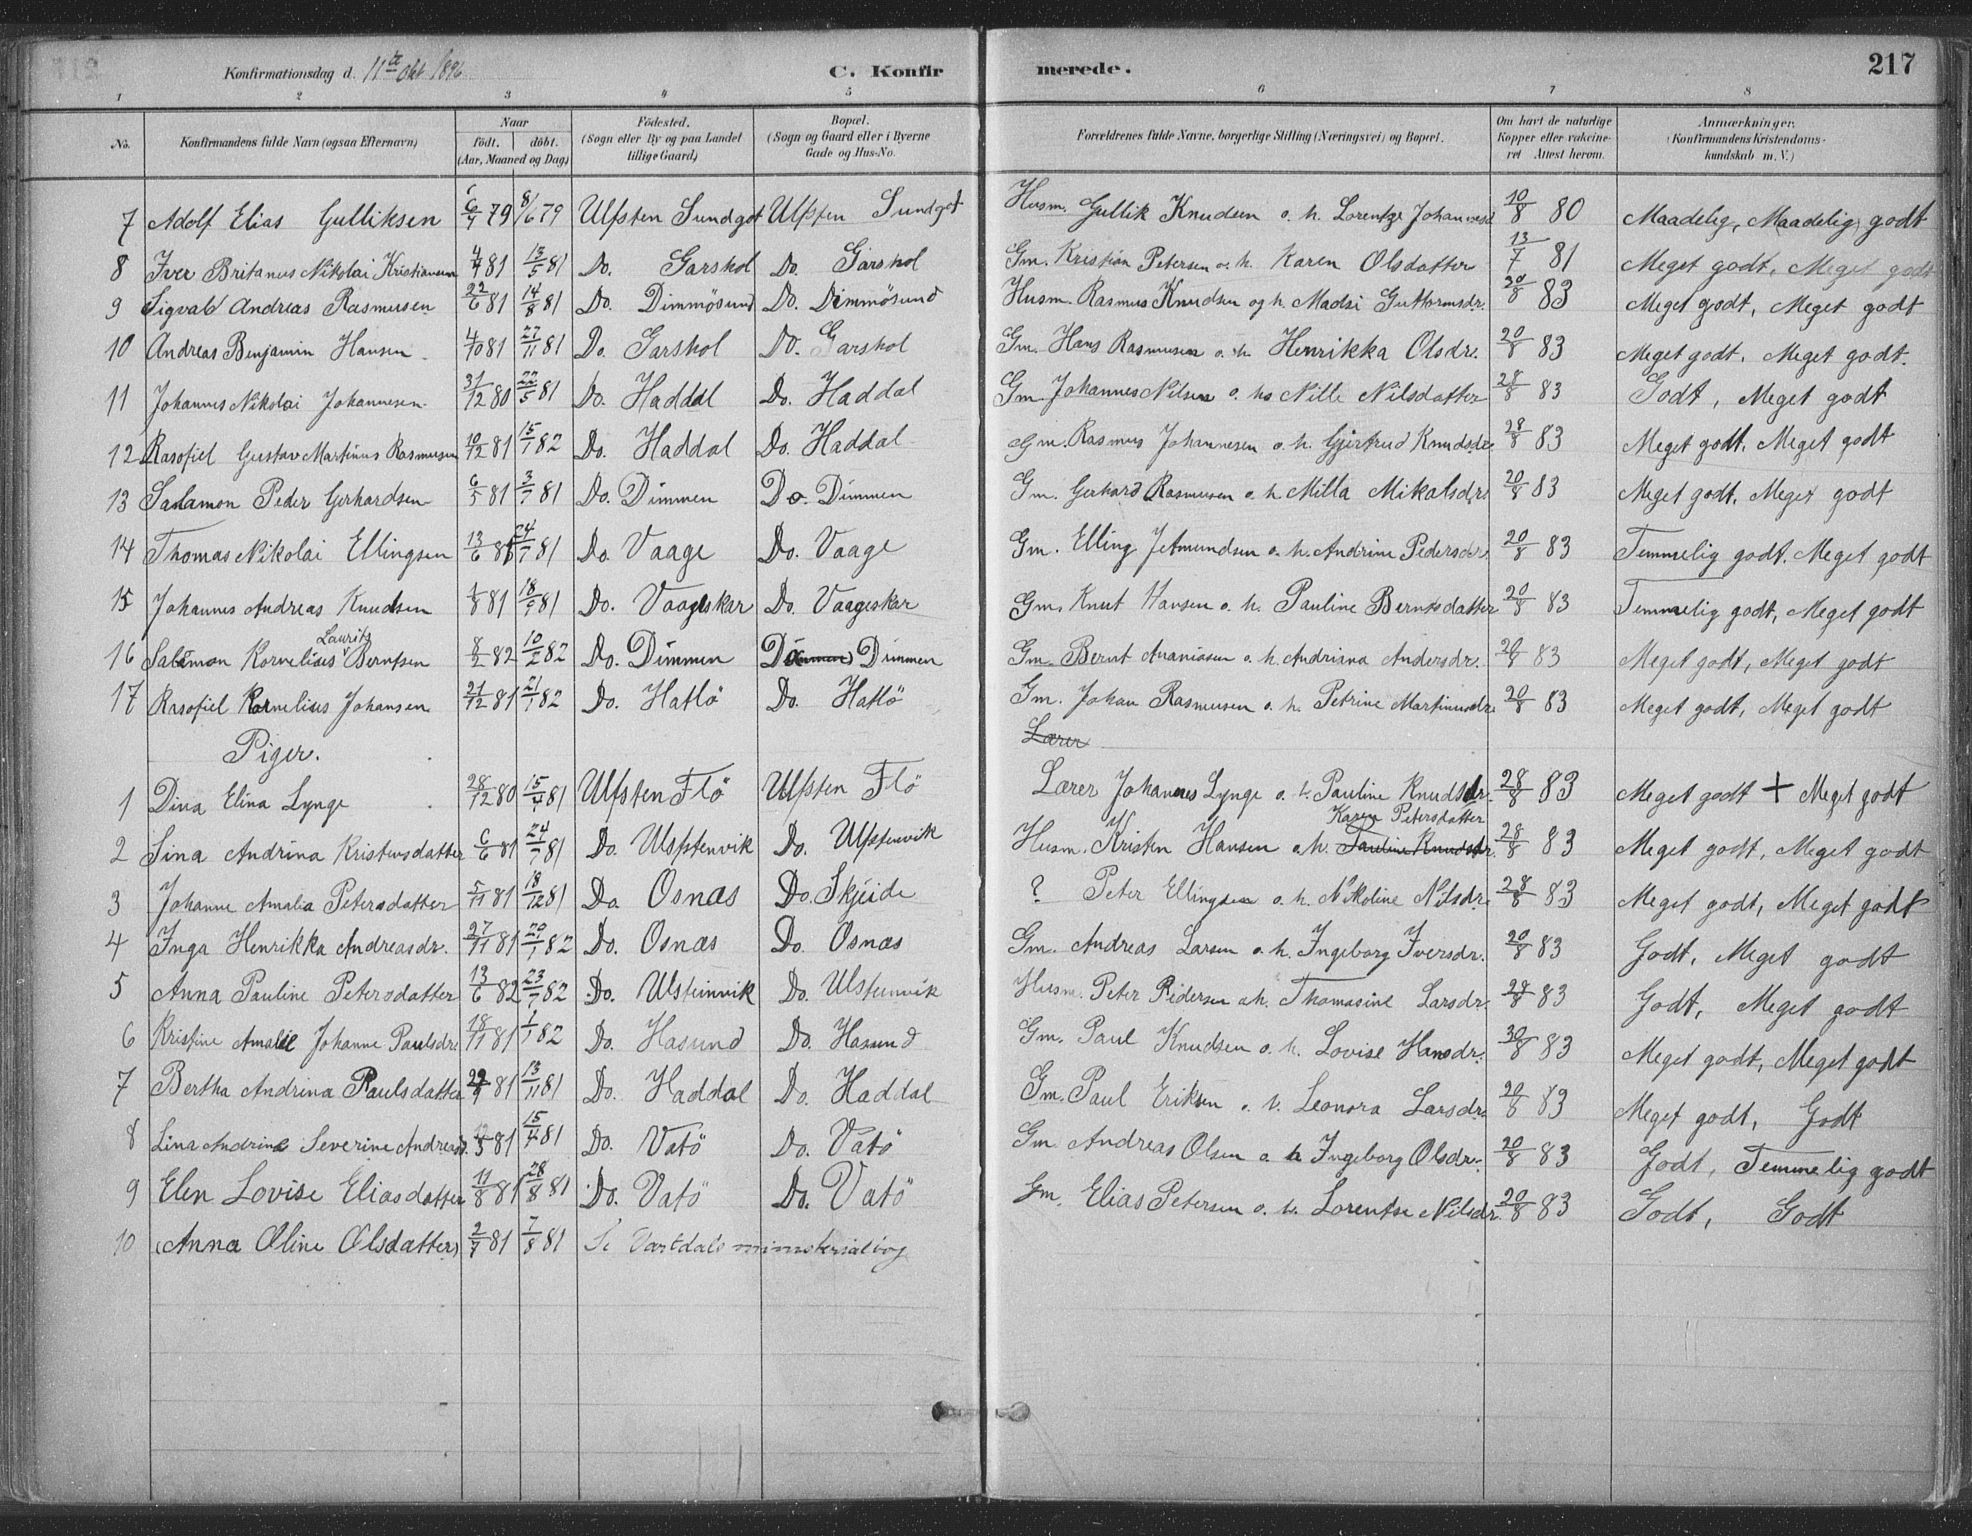 Konfirmationsdag d. 11te Okt 1896 C. Konfirmerede. 217
1 2 3 4 5 6 7 8
No. Konfirmandens fulde Navn (ogsaa Efternavn) Naar födt. döbt. (Aar, Maaned og Dag) Födested. (Sogn eller By og paa Landet tillige Gaard) Bopæl. (Sogn og Gaard eller i Byerne Gade og Hus-No. Forældrenes fulde Navne, borgerlige Stilling (Næringsvei) og Bopæl. Om havt de naturlige Kopper eller vakcineret Attest herom. Anmærkninger. (Konfirmandens Kristendomskundskab m. V.)
7 Adolf Elias Gulliksen 6/4 79 8/6 79 Ulfsten Sundgot Ulfsten Sundgot Husm. Gullik Knudsen o. h. Lorentze Johannesd 10/8 80 Maadelig, Maadelig godt
8 Iver Britanus Nikolai Kristiansen 4/4 81 13/5 81 Do. Garshol Do. Garshol Gm. Kristian Petersen o. h. Karen Olsdatter 13/7 81 Meget godt, Meget godt
9 Sigvald Andreas Rasmusen 22/6 81 14/8 81 Do. Dimmösund Do. Dimmösund Husm. Rasmus Knudsen og h. Madsi Guttormsdr. 20/8 83 Meget godt, Meget godt
10 Andreas Benjamin Hansen 4/10 81 27/11 81 Do. Garshol Do. Garshol Gm. Hans Rasmusen o. h. Henrikka Olsdr. 20/8 83 Meget godt. Meget godt.
11 Johannes Nikolai Johannesen 31/12 80 22/5 81 Do. Haddal Do. Haddal Gm. Johannes Nilsen o. hs Nille Nilsdatter 28/8 83 Godt, Meget godt
12 Rasofiel Gustav Martinus Rasmusen 10/12 81 15/1 82 Do. Haddal Do. Haddal Gm. Rasmus Johannesen o. h. Gjertrud Knudsdr. 28/8 83 Meget godt. Meget godt
13 Salamon Peder Gerhardsen 6/5 81 3/7 81 Do. Dimmen Do. Dimmen Gm. Gerhard Rasmusen o. h. Milla Mikalsdr. 20/8 83 Meget godt, Meget godt
14 Thomas Nikolai Ellingsen 13/6 81 24/7 81 Do Vaage Do. Vaage Gm. Elling Jetmundsen o. h. Andrine Pedersdr. 20/8 83 Temmelig godt. Meget godt
15 Johannes Andreas Knudsen /8 81 18/9 81 Do. Vaageskar Do. Vaageskar Gm. Knut Hansen o. h. Pauline Berntsdatter 20/8 83 Temmelig godt, Meget godt
Lauritz
16 Salamon Kornelius Berntsen 8/2 82 10/2 82 Do. Dimmen Do Dimmen Gm. Bernt Ananiasen o. h. Andriana Andersdr. 20/8 83 Meget godt, Meget godt
17 Rasofiel Kornelius Johansen 21/12 81 21/1 82 Do. Hatlö Do. Hatlö Gm. Johan Rasmusen o. h. Petrine Martinusdr. 20/8 83 Meget godt, Meget godt
Piger. Lærer
1 Dina Elina Lynge 28/12 80 15/4 81 Ulfsten Flö Ulfsten Flö Lærer Johannes Lynge o. h. Pauline Knudsdr. 28/8 83 Meget godt + Meget godt
Karen Petersdatter
2 Sina Andrina Kristensdatter 6/6 81 24/7 81 Do. Ulfstenvik Do. Ulfstenvik Husm. Kristen Hansen o. h. Pauline Knudsdr. 28/8 83 Meget godt, Meget godt
3 Johanne Amalia Petersdatter 5/11 81 18/12 81 Do Osnæs Do. Skjeide ? Peter Ellingsen o. h. Nikoline Nilsdr. 28/8 83 Meget godt, Meget godt
4 Inga Henrikka Andreasdr. 27/11 81 20/1 82 Do. Osnæs Do. Osnæs Gm. Andreas Larsen o. h. Ingeborg Iversdr. 20/8 83 Godt, Meget godt
5 Anna Pauline Petersdatter 13/6 82 23/7 82 Do. Ulsteinvik Do. Ulsteinvik Husm. Peter Pedersen o. h. Thomasine Larsdr. 28/8 83 Godt, Meget godt
6 Kristine Amalie Johanne Paulsdr. 18/11 81 1/1 82 Do. Hasund Do. Hasund Gm. Paul Knudsen o. h. Lovise Hansdr. 30/8 83 Meget godt, Meget godt
7 Bertha Andrina Paulsdatter 29/9 81 13/11 81 Do. Haddal Do. Haddal Gm. Paul Eriksen o. h. Leonora Larsdr. 20/8 83 Meget godt, Godt
8 Lina Andrine Severine Andreasd. /3 81 15/4 81 Do. Vatö Do. Vatö Gm Andreas Olsen o h Ingeborg Olsdr. 20/8 83 Godt, Temmelig godt
9 Elen Lovise Eliasdatter 11/8 81 28/8 81 Do. Vatö Do. Vatö Gm. Elias Petersen o. h. Lorentse Nilsdr. 20/8 83 Godt, Godt
10 (Anna Oline Olsdatter) 2/7 81 7/8 81 Se Vartdals ministerialbog